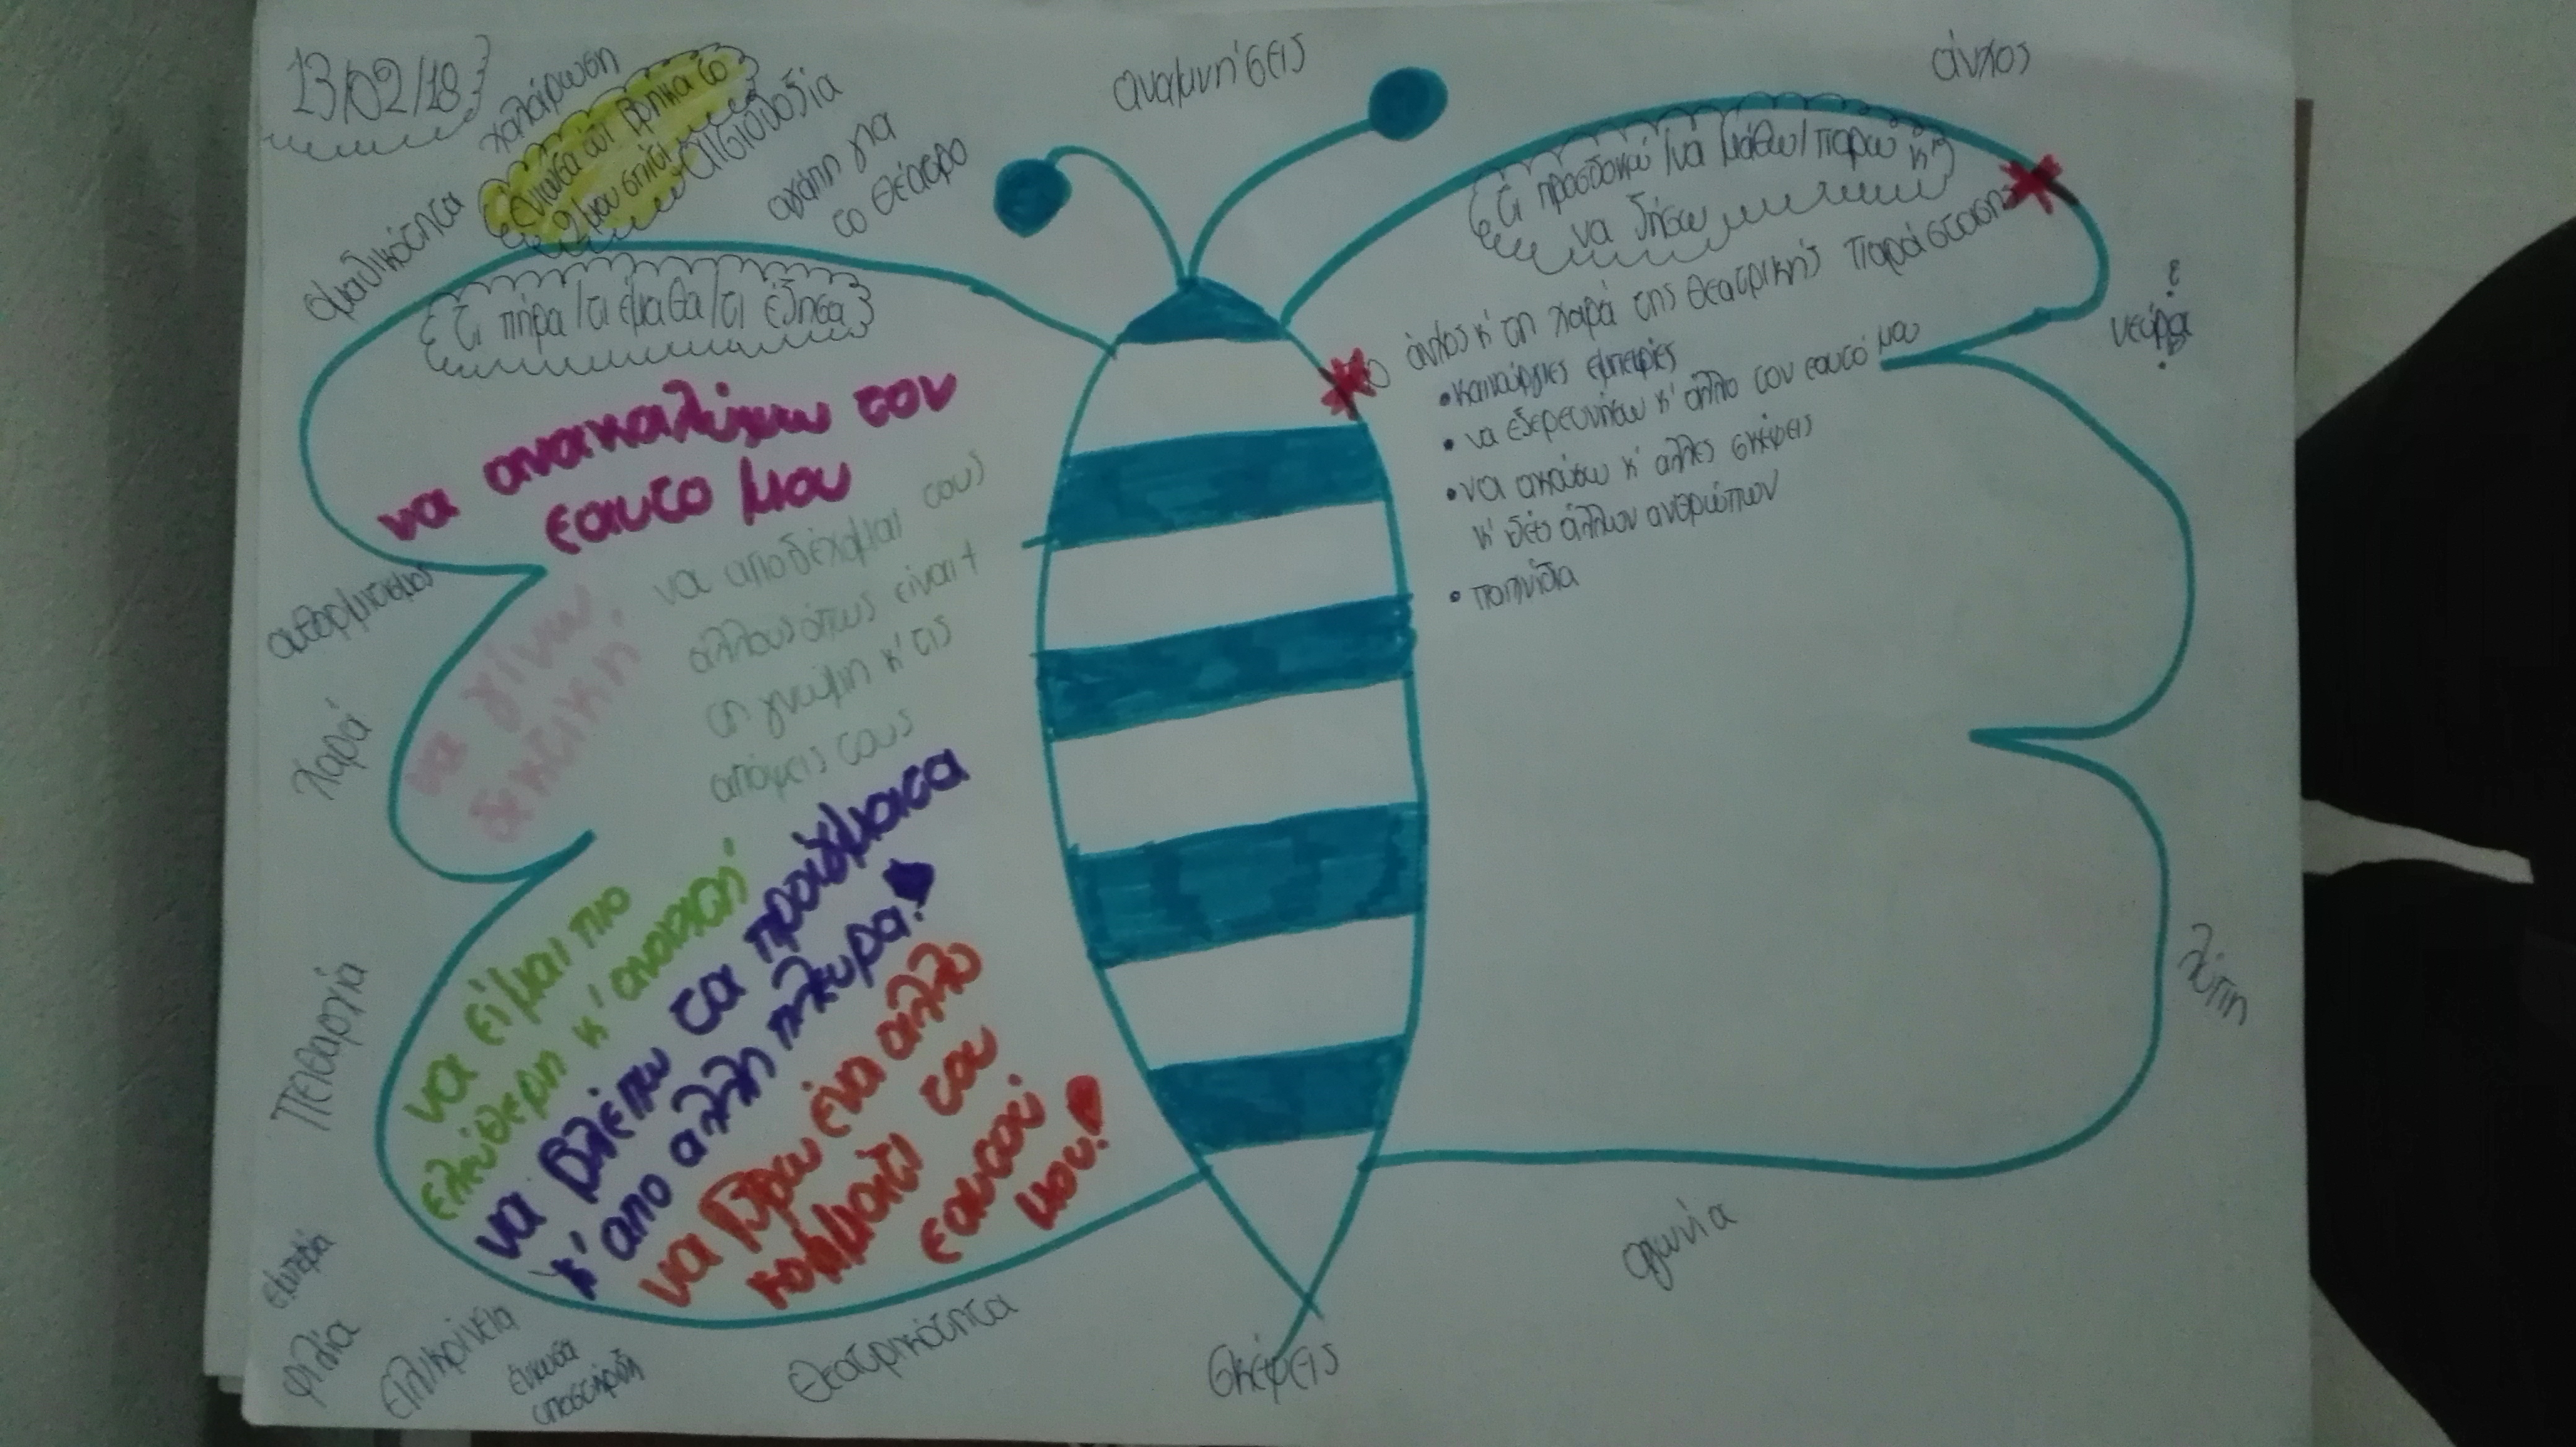 13/02/18
χαλάρωση
ένιωσα ότι βρήκα το
2ο μου σπίτι
αισιοδοξία
αγάπη για
το θέατρο
ομαδικότητα
αναμνήσεις
άνχος
τι πήρα/τι έμαθα/τι έζησα
να ανακαλύχω τον
εαυτο μου
να αποδέχομαι τους
άλλους όπως είναι +
τη γνώμη κ' τις
απόψεις τους
να γίνω
δεκτική
να είμαι πιο
ελεύθερη κ' ανοιχτή
να βλέπω τα προβλήματα
κ' απο αλλη πλευρα!
να βρω ένα αλλο
κομμάτι του
εαυτού
μου!
τι προσδοκώ/να μάθω/πάρω κ'
να ζήσω
το άνχος κ' τη χαρά της θεατρικής παράστασης
• καινούργιες εμπειρίες
• να εξερευνήσω κ' άλλο τον εαυτό μου
• να ακούσω κ' αλλες σκέψεις
κ' ιδέες άλλων ανθρώπων
• παιχνίδια
νεύρα
λύπη
αγωνία
σκέψεις
θεατρικότητα
ένιωσα
υποστήριξη
ειλικρίνεια
φιλία
εμπειρία
πειθαρχία
χαρά
αυθορμητισμος